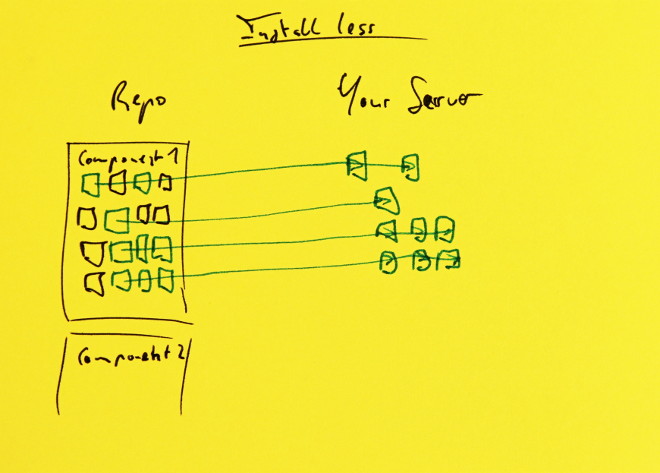 Install less
Repo
Your Server
Component 1
Component 2